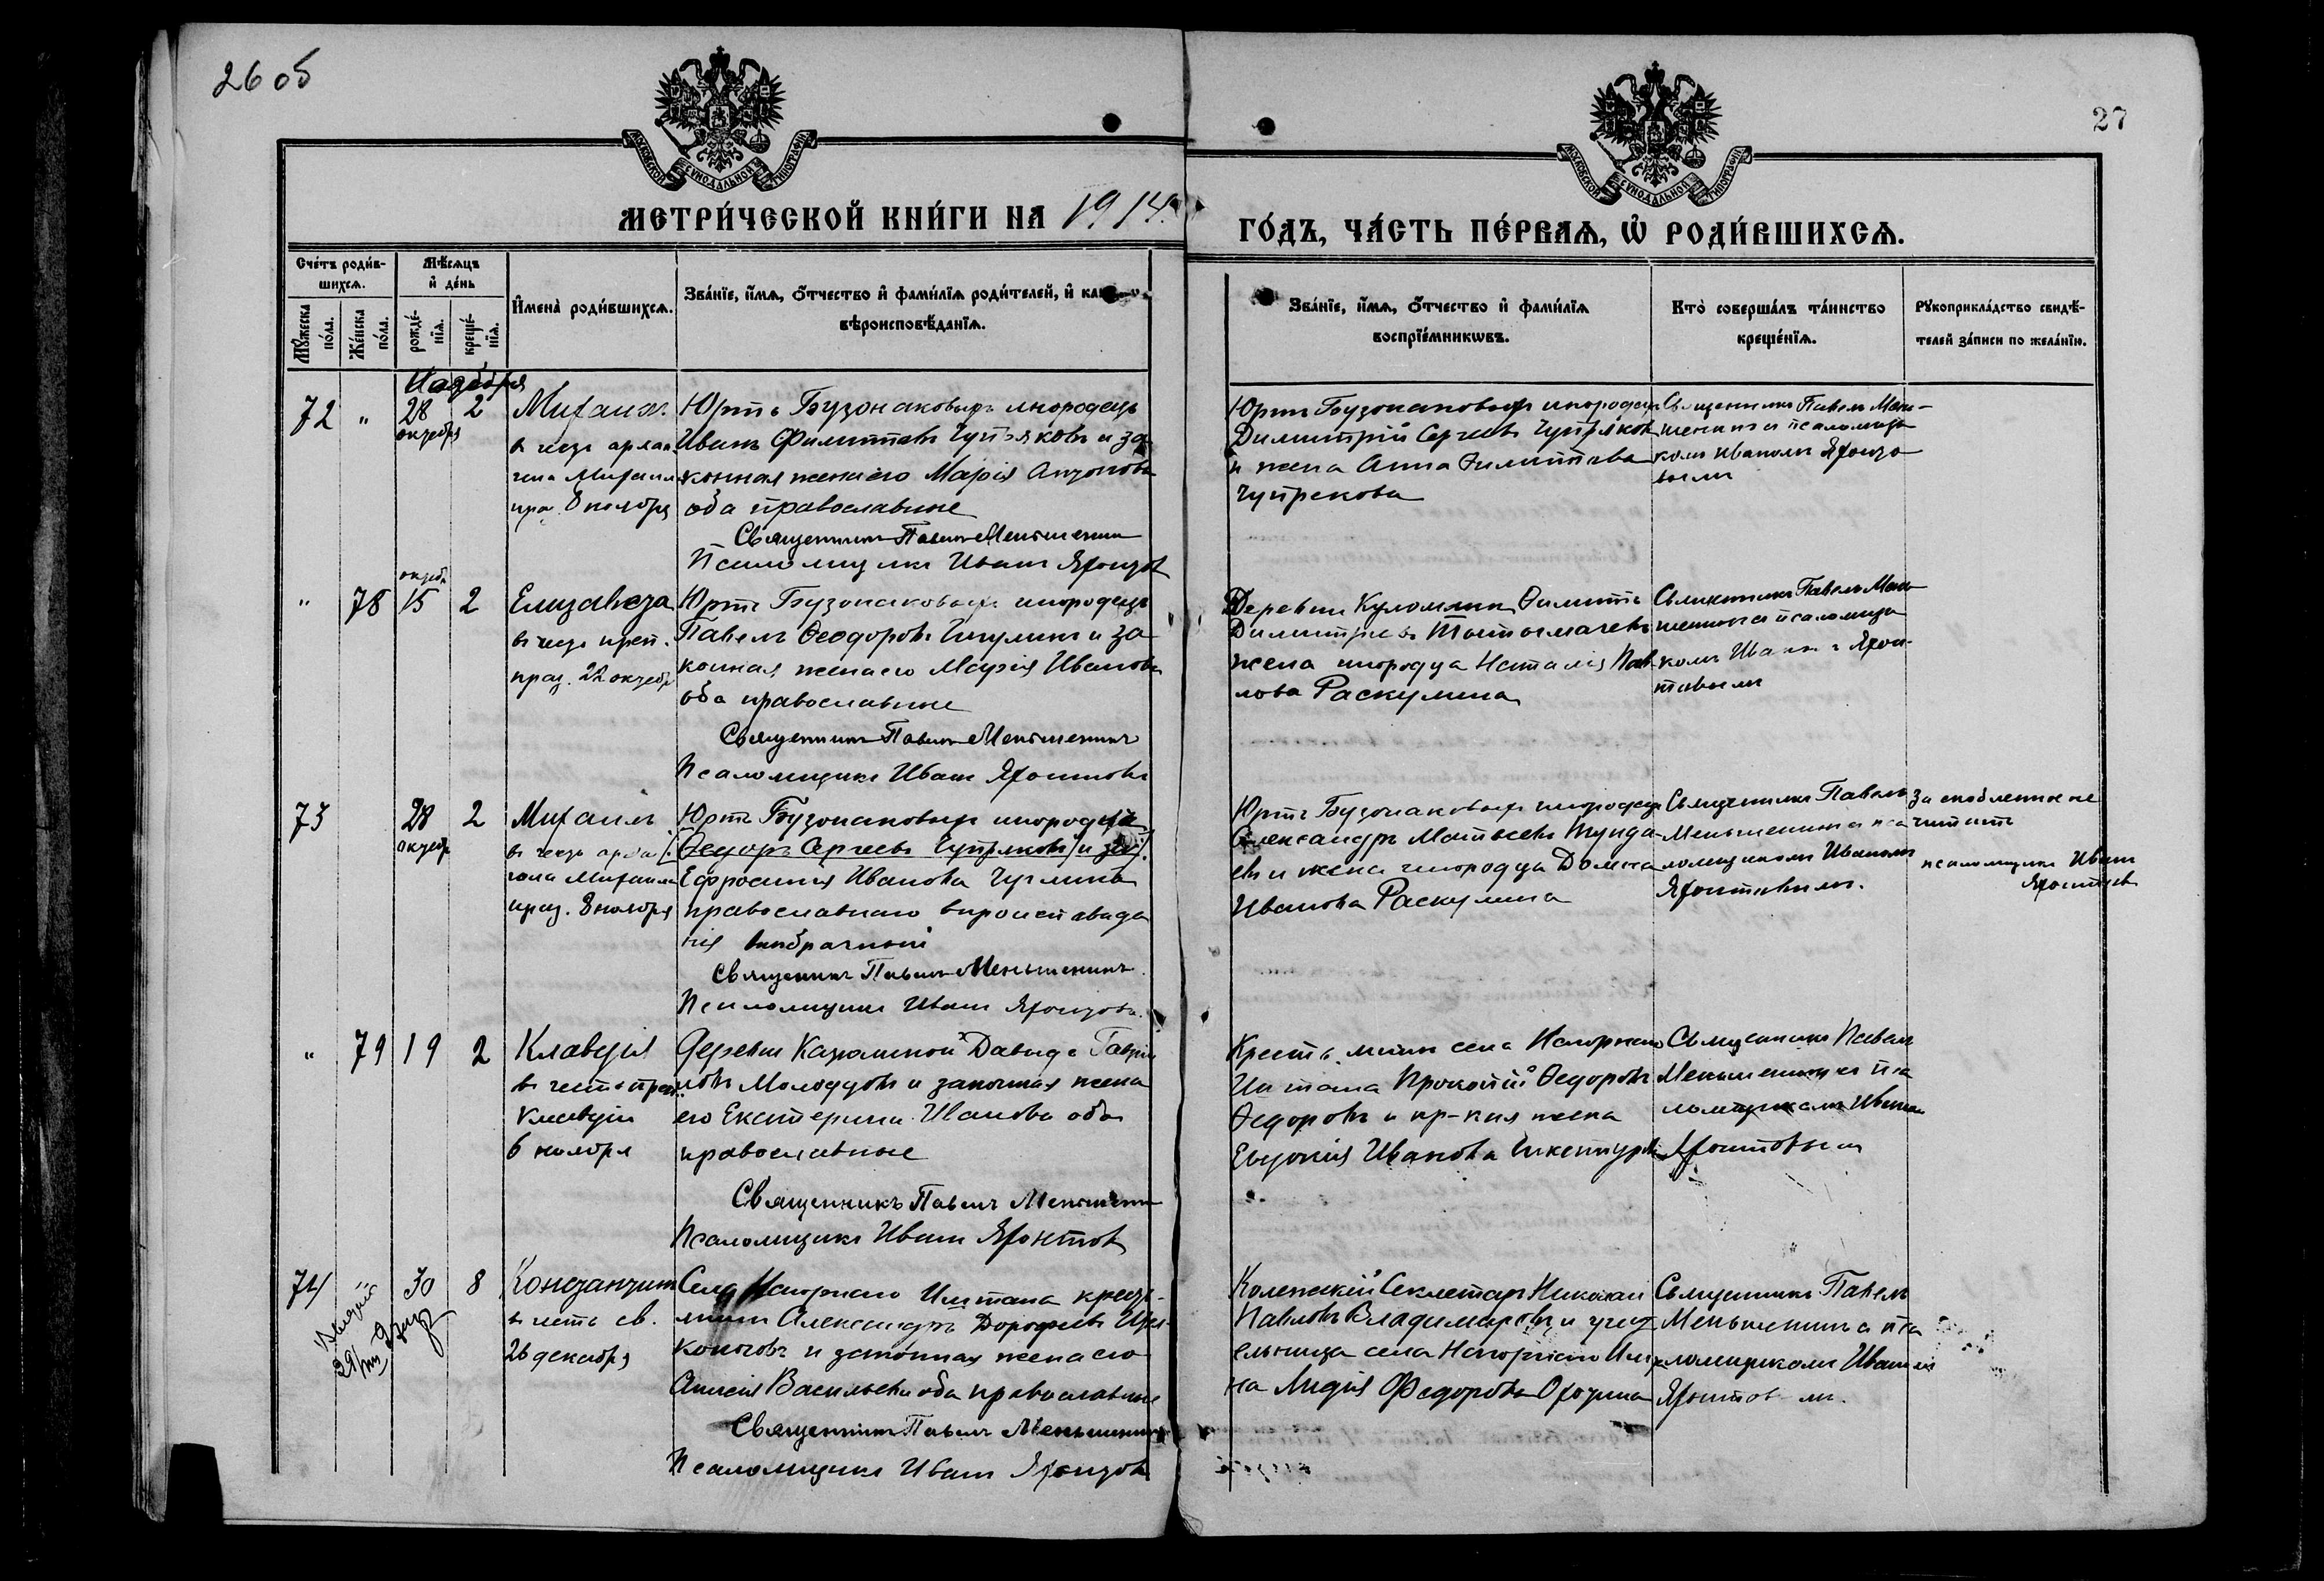 26 об
27
МОСКОВСКОЙ СѴНОДАЛЬНОЙ ТИПОГРАФІИ
МОСКОВСКОЙ СѴНОДАЛЬНОЙ ТИПОГРАФІИ
МЕТРИ́ЧЕСКОЙ КНИ́ГИ НА 1914
ГО́ДЪ, ЧА́СТЬ ПЕ́РВАѦ, Ѡ҆ РОДИ́ВШИХСѦ.
Сче́тъ роди́в-
шихсѧ.
Мꙋ́жеска по́ла.
Же́нска по́ла.
Мѣ́сѧцъ
и҆ де́нь
рожде́-
нїѧ.
креще́-
нїѧ.
И҆мена̀ роди́вшихсѧ.
Зва́нїе, и҆́мѧ, ѻ҆́тчество и҆ фами́лїѧ роди́телей, и҆
вѣроисповѣ́данїѧ.
Зва́нїе, и҆́мѧ, ѻ҆́тчество и҆ фами́лїѧ
воспрїе́мникѡвъ.
Кто̀ соверша́лъ та́инство
креще́нїѧ.
Рꙋкоприкла́дство свидѣ́-
телей за́писи по жела́нїю.
Ноября
72 " 28 2
октября
Михаилъ
в честь архан
гела Михаила
праз. 8 ноября
Юртъ Бузонаковыхъ инородецъ
Иванъ Филиппов Чупряковъ и за
конная жена его Марія Антонова
оба православные
Священникъ Павелъ Меньшенинъ
Псаломщикъ Иванъ Яхонтов
Юртъ Бузонаковыхъ инородец
Димитрій Сергеевъ Чупряков
и жена Анна Филиппова
Чупрекова
Священникъ Павелъ Мень-
шенинъ и псаломщи
комъ Иваномъ Яхонто
вымъ
" 78 15 2
октябр
Елизавета
в честь преп.
праз. 22 октября
Юртъ Бузонаковыхъ инородецъ
Павелъ Ѳеодоровъ и за
конная жена его Марія Иванова
оба православные
Священникъ Павелъ Меньшенинъ
Псаломщикъ Иванъ Яхонтовъ
Деревни Филиппъ
Димитріевъ
жена инородца Наталія Пав
лова Раскулина
Священникъ Павелъ Мень
шенинъ и псаломщи
комъ Иваномъ Яхон
товымъ
73 28 2
октябр
Михаилъ
в честь архан
гела Михаила
праз. 8 ноября
Юртъ Бузонаковыхъ инородца
Ѳедоръ Сергеевъ Чупряковъ и за
Ефросинія Иванова
православнаго вероисповеда
нія внебрачный
Священникъ Павелъ Меньшенинъ
Псаломщикъ Иванъ Яхонтовъ
Юртъ Бузонаковыхъ инородец
Александръ Матвеевъ
и жена инородца Домна
Иванова Раскулина
Священникъ Павелъ
Меньшенинъ и пса
ломщикомъ Иваномъ
Яхонтовымъ.
За скобленное не
читать
псаломщикъ Иванъ
Яхонтовъ
" 79 19 2
Клавдія
в честь преп
Клавдіи
6 ноября
Деревни Давидъ Гаврии
ловъ Молодцовъ и законная жена
его Екатерина Иванова оба
православные
Священникъ Павелъ Меньшенин
Псаломщикъ Иванъ Яхонтов
Крестьянинъ села Нагорнаго
Иштана Прокопій Ѳедоровъ
Ѳедоровъ и кр-кая жена
Евдокія Иванова
Священникъ Павелъ
Меньшенинъ и пса
ломщикомъ Иваном
Яхонтовым
74 " 30 8
Константинъ
в честь св.
26 декабря
Села Нагорнаго Иштана кресть-
янинъ Александръ Дорофеевъ
и законная жена его
Васильева оба православные
Священникъ Павелъ Меньшенинъ
Псаломщикъ Иванъ Яхонтов
Коллежскій Секретарь Николай
Павловъ Владимировъ и учит
ельница села Нагорнаго Ишта
на Лидія Федорова
Священникъ Павелъ
Меньшенинъ и пса
ломщикомъ Иваном
Яхонтовым.